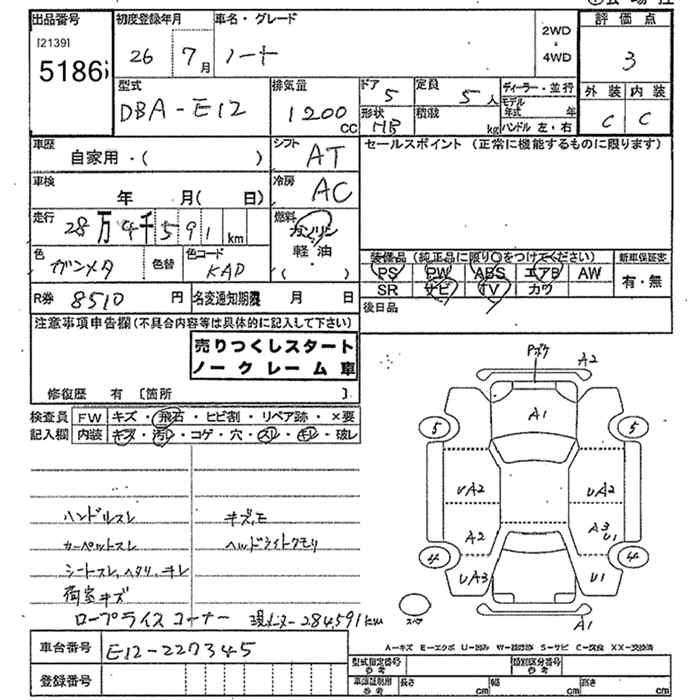 出品番号 初度登録年月 車名・グレード 2WD・4WD 評価点
[2139]
5186 26 7月 ノート 3
型式 排気量 ドア 定員 ディーラー・並行 外装 内装
DBA-E12 1200 CC 5 5人 モデル年式 年 C C
形状 HB 積載 kg ハンドル 左・右
車歴 シフト セールスポイント (正常に機能するものに限ります)
自家用・( ) AT
車検 冷房
年 月( 日) AC
走行 燃料
28万4千591 km ガソリン
軽油
( )
色 色替 色コード
ガンメタ KAD
装備品 (純正品に限り○をつけてください) 新車保証書
PS PW ABS エアB AW 有・無
SR ナビ TV カワ
R券 8510 円 名変通知期限 月 日 後日品
注意事項申告欄(不具合内容等は具体的に記入して下さい)
売りつくしスタート
ノークレーム車
修復歴 有 〔箇所 〕
検査員 FW キズ・飛石・ヒビ割・リペア跡・×要
記入欄 内装 キズ・汚れ・コゲ・穴・スレ・キレ・破レ
ハンドルスレ キズ、モ
カーペットスレ ヘッドライトクモリ
シートスレ、ヘタリ、キレ
荷室キズ
ロープライスコーナー 現メーター284,591km
Pズケ A2
A1
5 5
UA2 UA2
A2 A3 U1
4 4
UA3 U1
スペア A1
A-キズ E-エクボ U-凹み W-補修跡 S-サビ C-腐食 XX-交換済
車台番号 E12-227345
登録番号
型式指定番号 参考 類別区分番号 参考
車庫証明用 参考 長さ cm 幅 cm 高さ cm